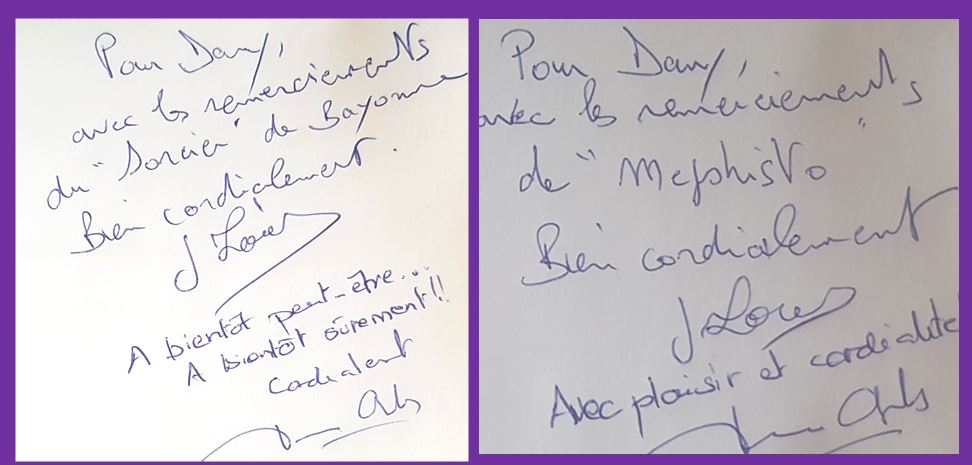 Pour Dany,
avec les remerciements
du "Sorcier" de Bayonne
Bien cordialement.
A bientôt peut-être...
A bientôt sûrement!!
Cordialent
Pour Dany,
avec les remerciements
de "Mephisto"
Bien cordialement
Avec plaisir et cordialité